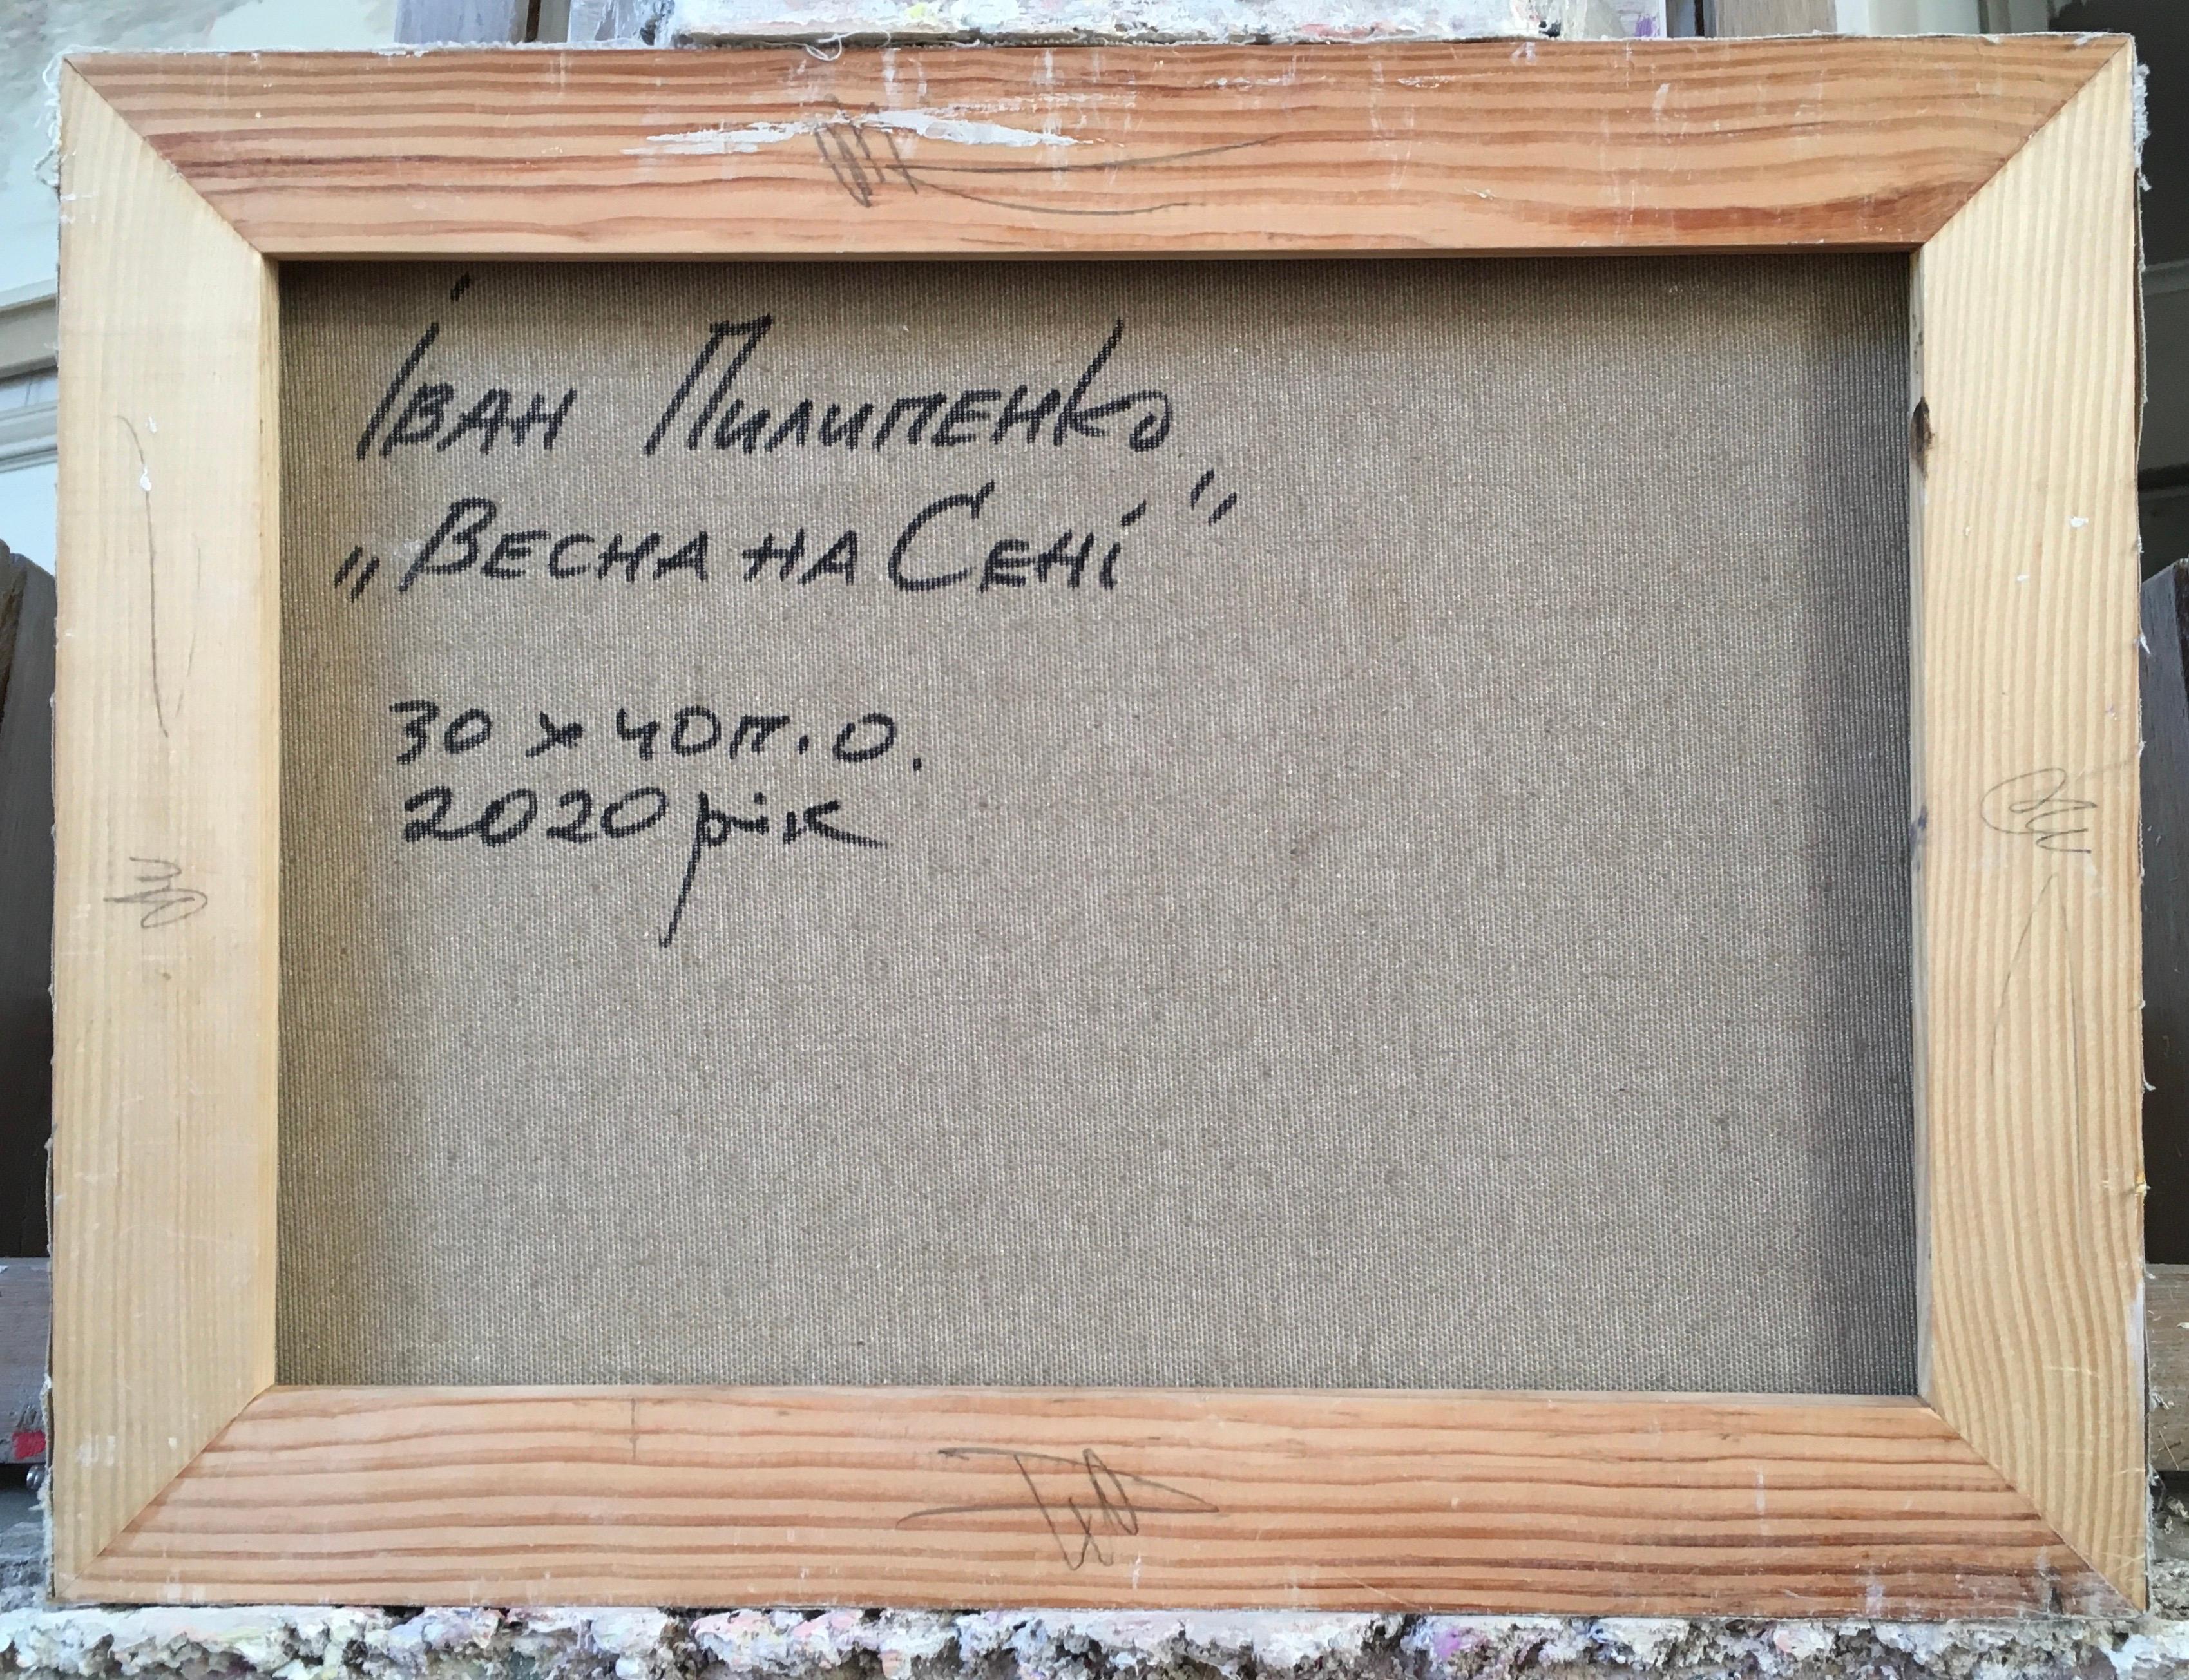 Іван Пилипенко
„Весна на Сені"
30 х 40 п.о.
2020 рік